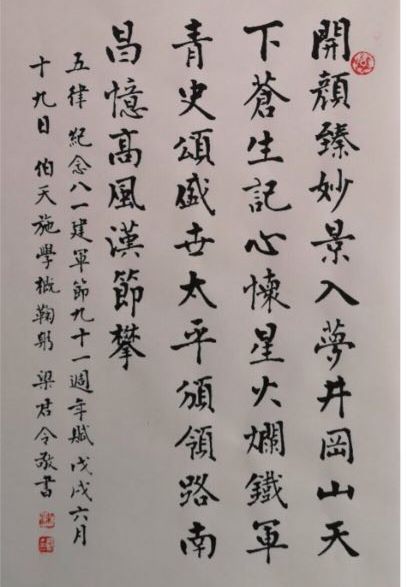 開顏臻妙景入夢井岡山天
下蒼生記心懷星火爛鐵軍
青史頌盛世太平頒領路南
昌憶高風漢節攀
五律 紀念八一建軍節九十一週年賦 戊戌六月
十九日 伯天施學概鞠躬 梁君令敬書